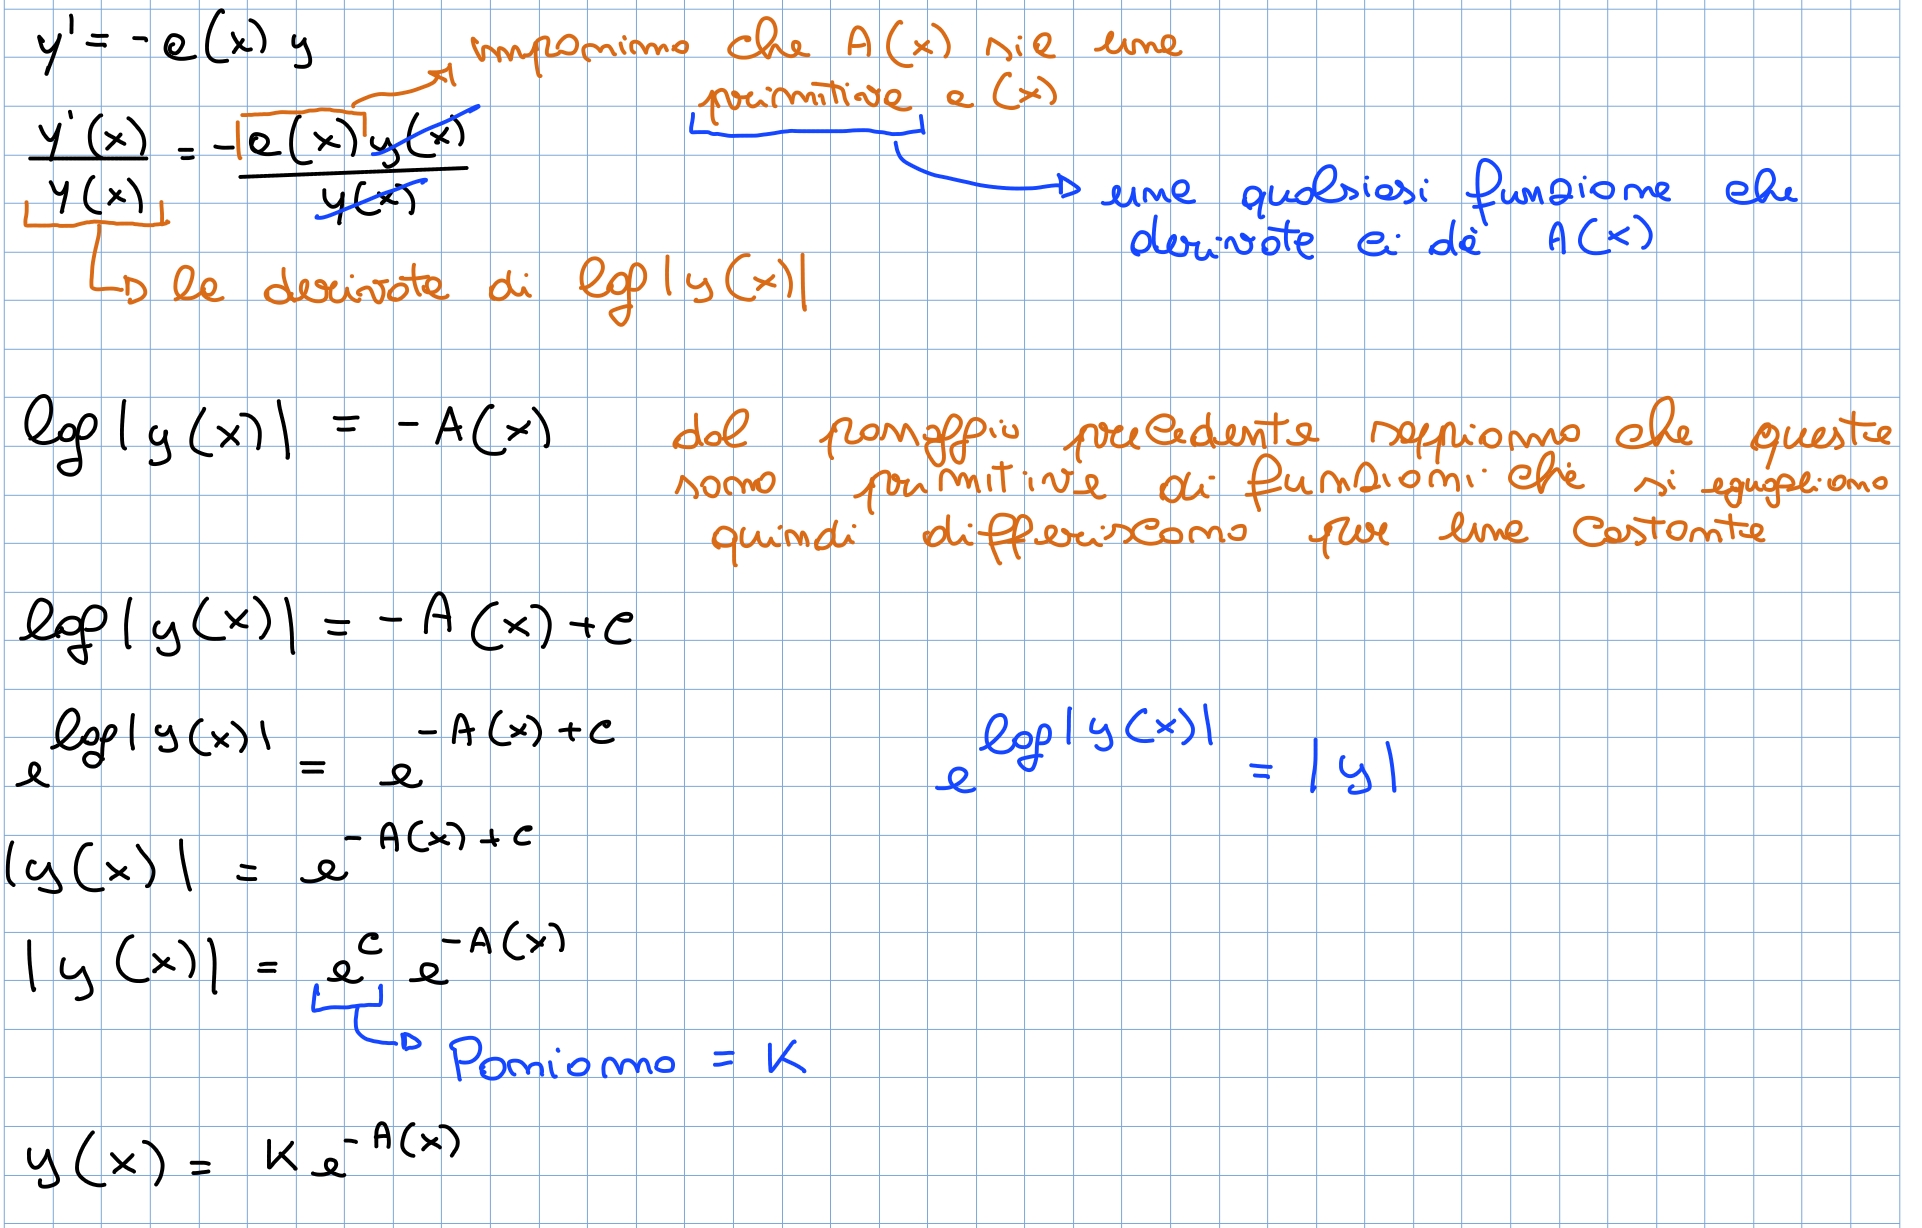 y' = - a(x) y
imponiamo che A(x) sia una
primitiva a(x)
y'(x) / y(x) = - a(x) y(x) / y(x)
una qualsiasi funzione che
derivata ci dà A(x)
la derivata di log |y(x)|
log |y(x)| = - A(x)
dal passaggio precedente sappiamo che queste
sono primitive di funzioni che si eguagliano
quindi differiscono per una costante
log |y(x)| = - A(x) + c
e^{log |y(x)|} = e^{-A(x) + c}
e^{log |y(x)|} = |y|
|y(x)| = e^{-A(x) + c}
|y(x)| = e^c e^{-A(x)}
Poniamo = K
y(x) = K e^{-A(x)}